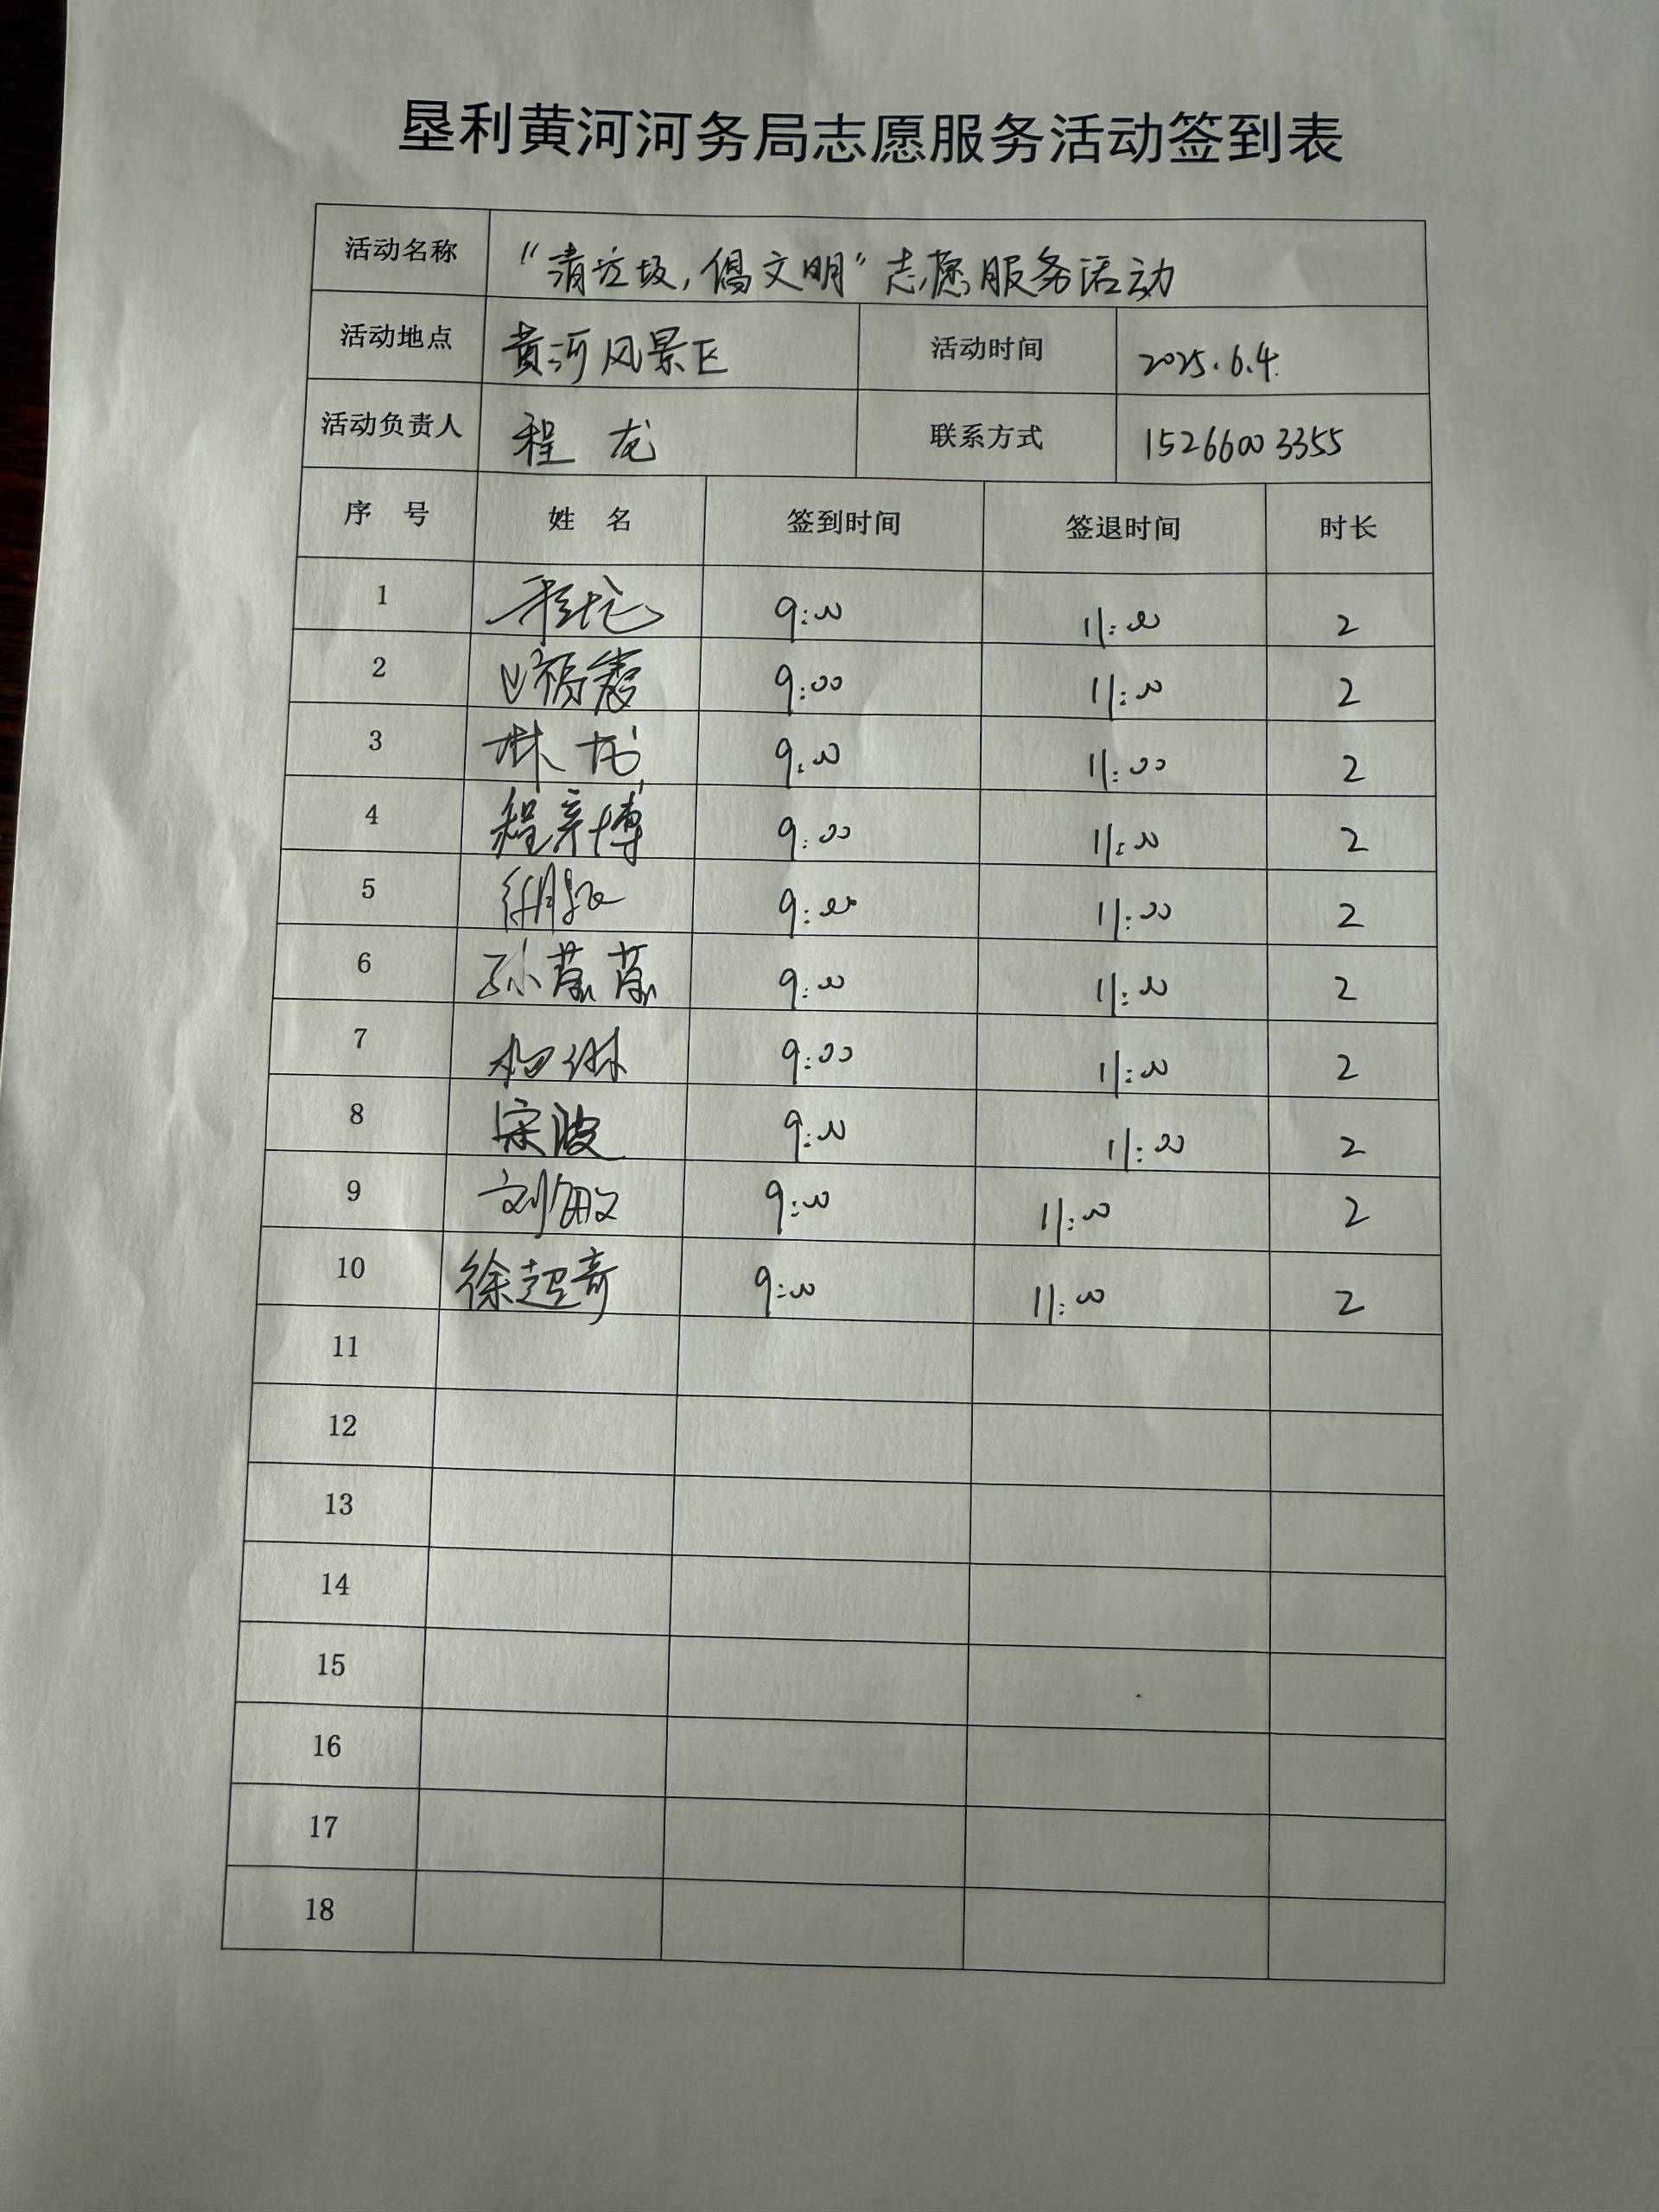 垦利黄河河务局志愿服务活动签到表
活动名称 “清垃圾,倡文明”志愿服务活动
活动地点 黄河风景区 活动时间 2025.6.4.
活动负责人 程龙 联系方式 15266003355
序号 姓名 签到时间 签退时间 时长
1 程龙 9:00 11:00 2
2 9:00 11:00 2
3 林龙 9:00 11:00 2
4 程彦博 9:00 11:00 2
5 9:00 11:00 2
6 孙 9:00 11:00 2
7 杨琳 9:00 11:00 2
8 宋波 9:00 11:00 2
9 刘敏 9:00 11:00 2
10 徐超奇 9:00 11:00 2
11
12
13
14
15
16
17
18